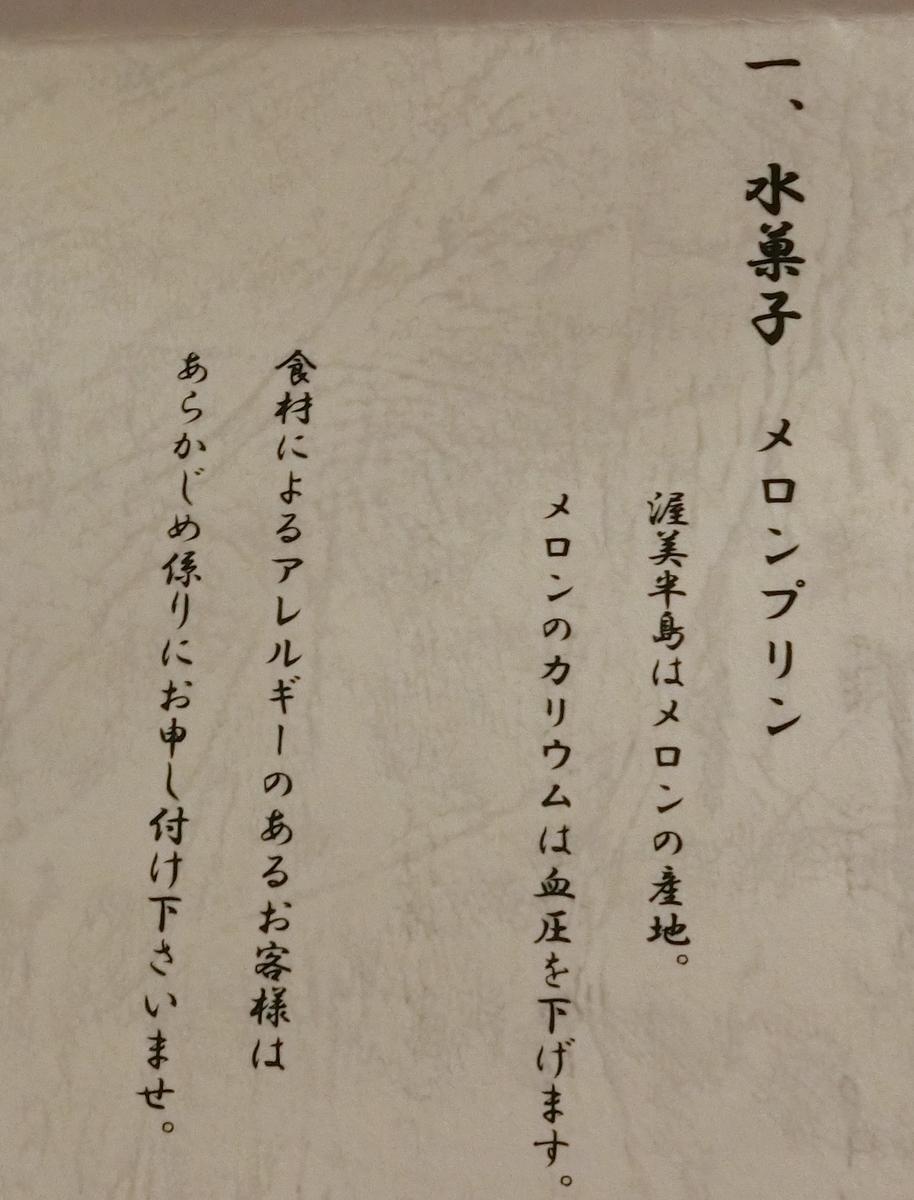 一、 水菓子 メロンプリン
渥美半島はメロンの産地。
メロンのカリウムは血圧を下げます。
食材によるアレルギーのあるお客様は
あらかじめ係りにお申し付け下さいませ。